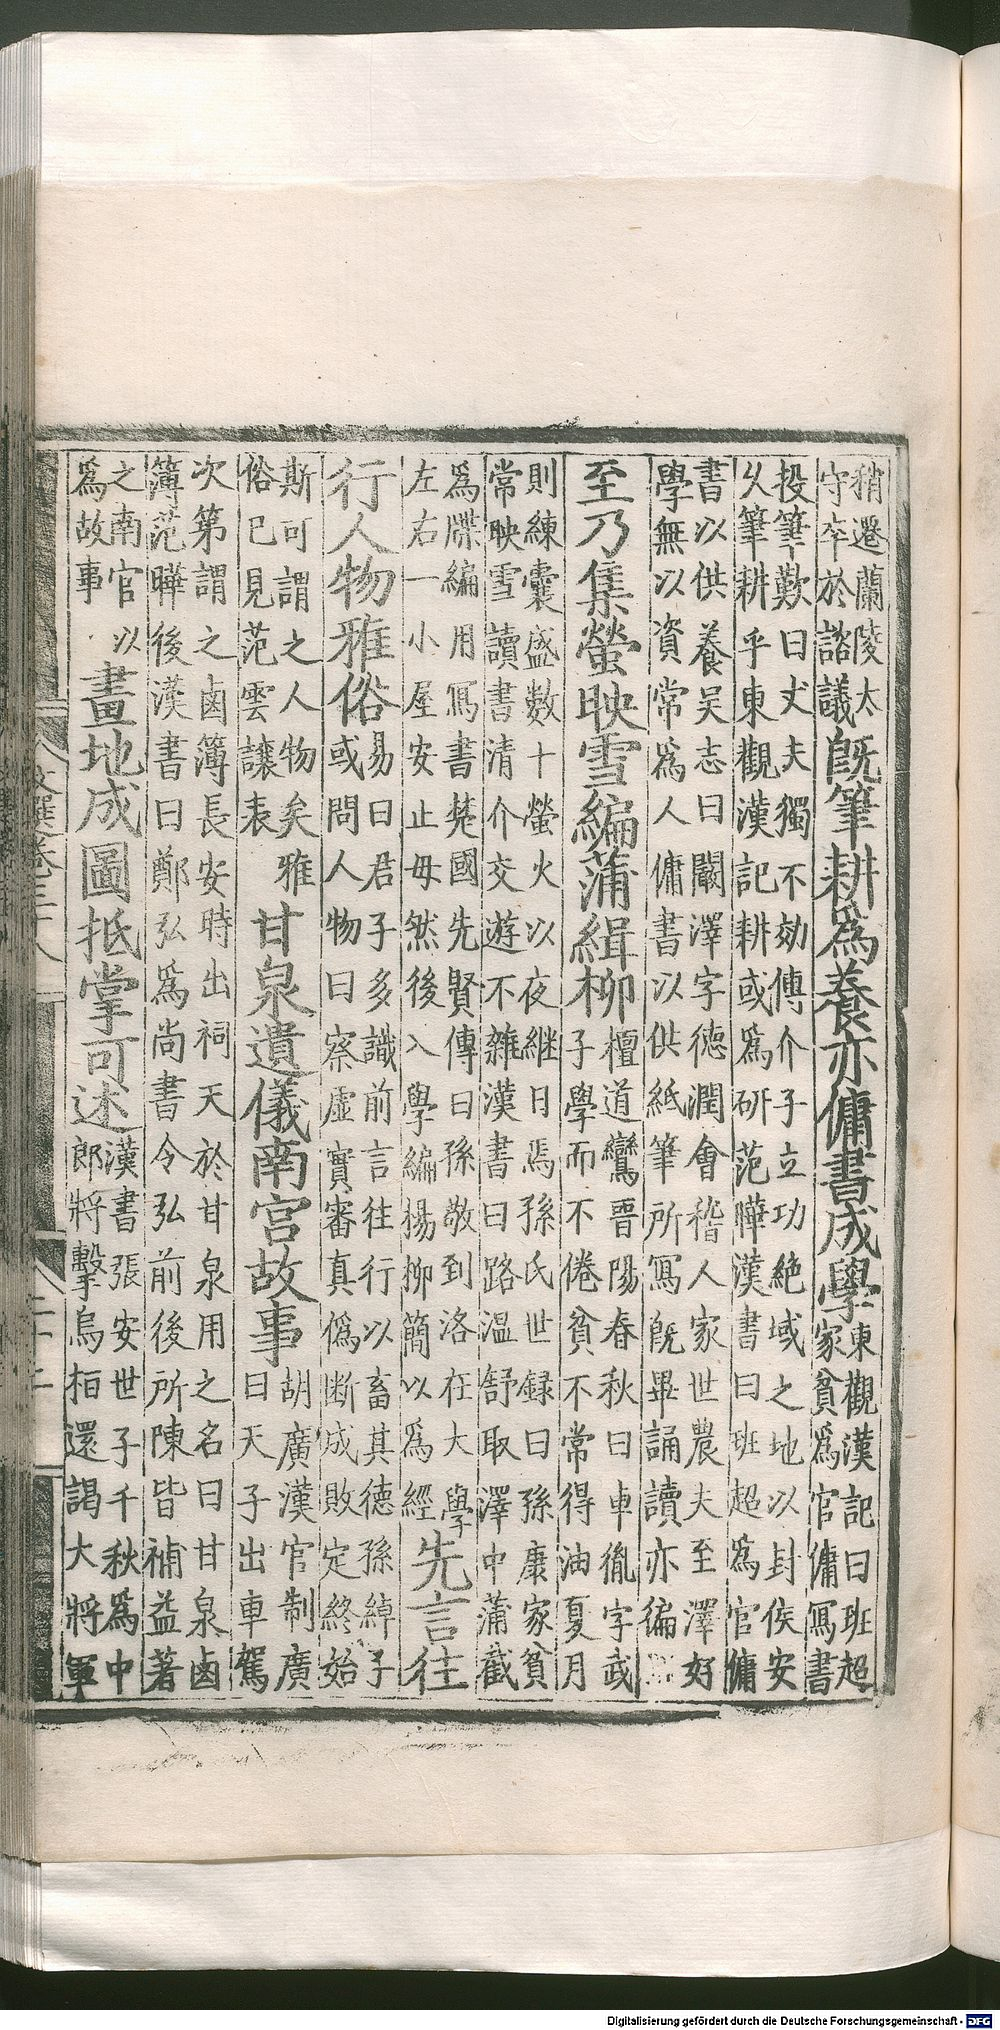 稍遷蘭陵太
守卒於諮議
既筆耕爲養亦傭書成學
東觀漢記曰班超
家貧爲官傭寫書
投筆歎曰丈夫獨不効傅介子立功絶域之地以封侯安
久筆耕乎東觀漢記耕或爲研范曄漢書曰班超爲官傭
書以供養吴志曰闞澤字德潤會稽人家世農夫至澤好
學無以資常爲人傭書以供紙筆所寫既畢誦讀亦徧
至乃集螢映雪編蒲緝柳
檀道鸞晋陽春秋曰車胤字武
子學而不倦貧不常得油夏月
則練囊盛數十螢火以夜継日焉孫氏世録曰孫康家貧
常映雪讀書清介交遊不雜漢書曰路温舒取澤中蒲截
爲牒編用寫書楚國先賢傳曰孫敬到洛在大學
左右一小屋安止母然後入學編楊柳簡以爲經
先言往
行人物雅俗
易曰君子多識前言往行以畜其德孫綽子
或問人物曰察虚實審真僞斷成敗定終始
斯可謂之人物矣雅
俗已見范雲讓表
甘泉遺儀南宫故事
胡廣漢官制廣
曰天子出車駕
次第謂之鹵簿長安時出祠天於甘泉用之名曰甘泉鹵
簿范曄後漢書曰鄭弘爲尚書令弘前後所陳皆補益著
之南宫以
爲故事
畫地成圖抵掌可述
漢書張安世子千秋爲中
郎將擊烏桓還謁大將軍
文選卷三十八
二十二
Digitalisierung gefördert durch die Deutsche Forschungsgemeinschaft - DFG